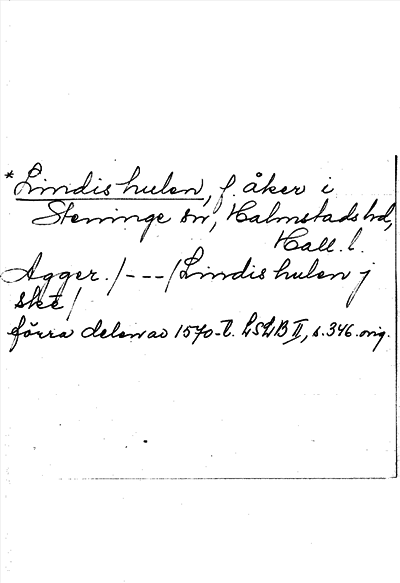 *Lindishulen, f. åker i
Steninge sn, Halmstads hd,
Hall. l.
Agger. /---/ Lindishulen j
ske /
förra delen av 1570-t. LSLB II, s. 346. orig.